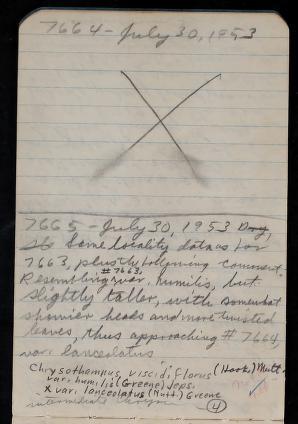 7664 - July 30, 1953
7665 - July 30, 1953
Same locality data as for
7663, plus the following comment.
#7663,
Resembling var. humilis, but
slightly taller, with somewhat
showier heads and more twisted
leaves, thus approaching #7664,
var. lanceolatus
Chrysothamnus viscidiflorus (Hook) Nutt.
var. humilis (Greene) Jeps.
x var. lanceolatus (Nutt) Greene
intermediate
4